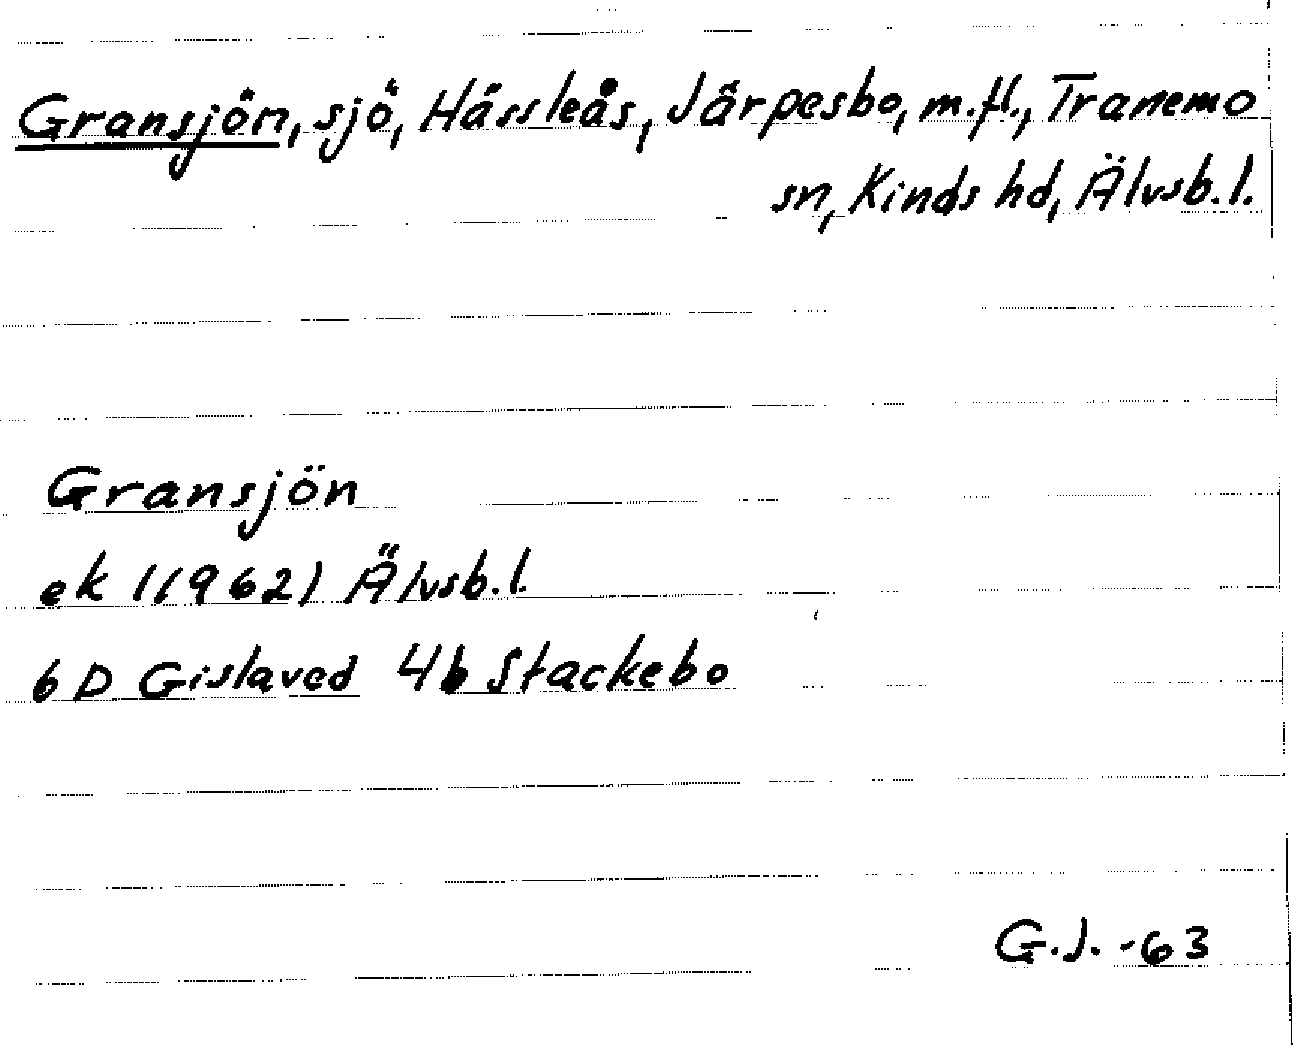 Gransjön, sjö, Hässleås, Järpesbo, m.fl., Tranemo
sn, Kinds hd, Älvsb.l.
Gransjön
ek 1(1962) Älvsb.l.
6D Gislaved 4b Stackebo
G.J. -63